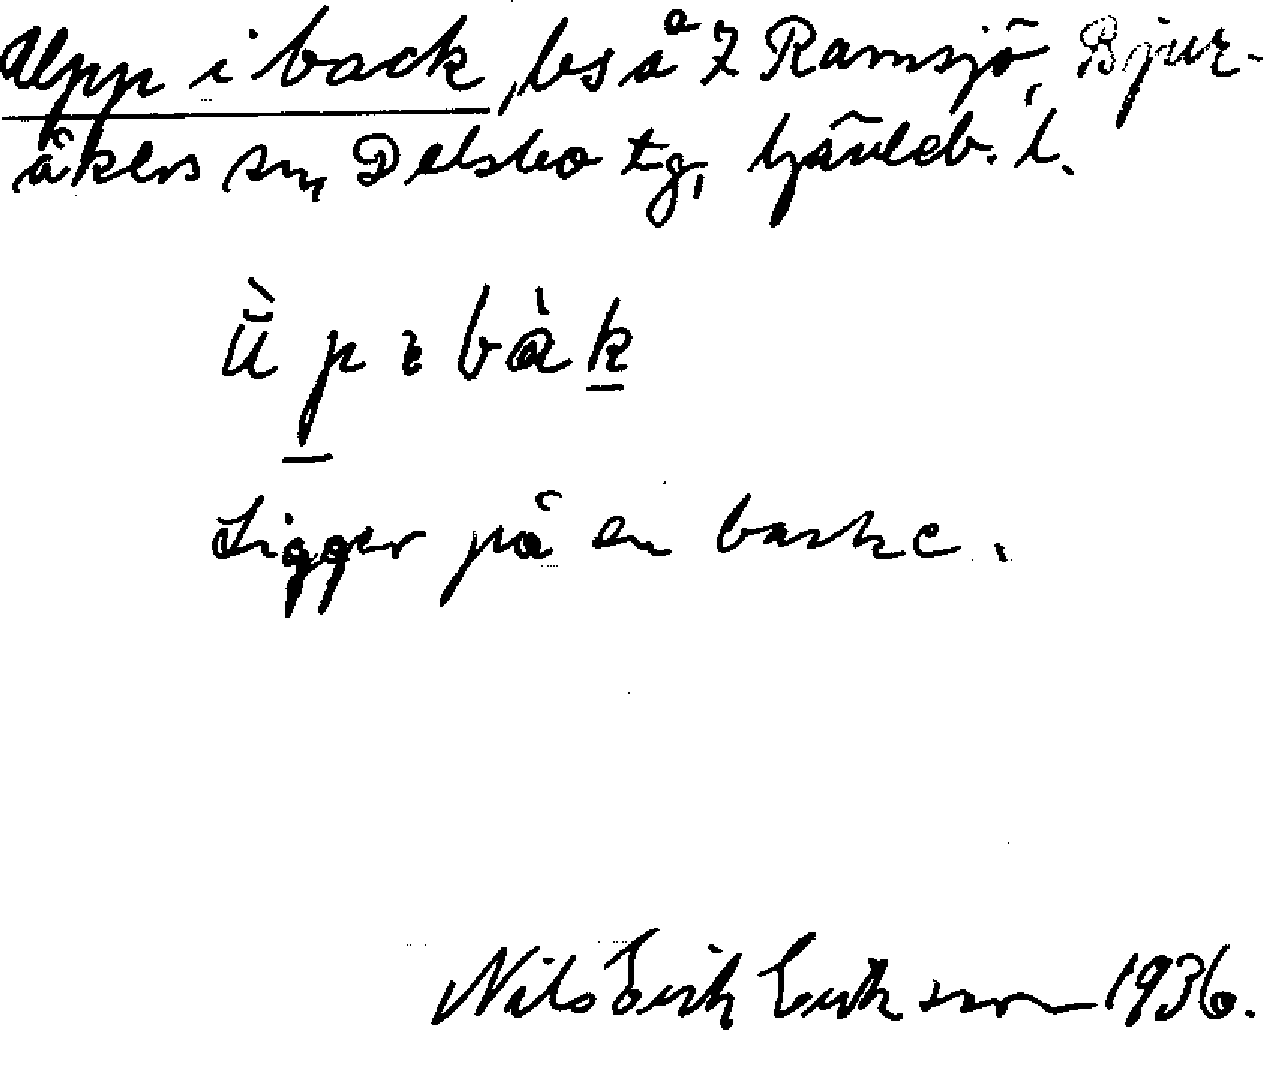 Upp i back, bs å 7 Ramsjö, Bjur-
åkers sn, Delsbo tg, Gävleb. l.
Ùpɩbàk
Ligger på en backe.
Nils Erik Eriksson 1936.